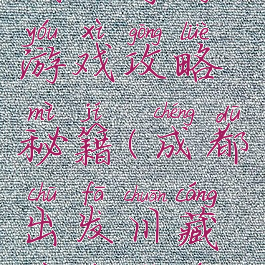 yóu xì gōng lüè
游戏攻略
mì jí chéng dū
秘籍(成都
chū fā chuān cáng
出发川藏